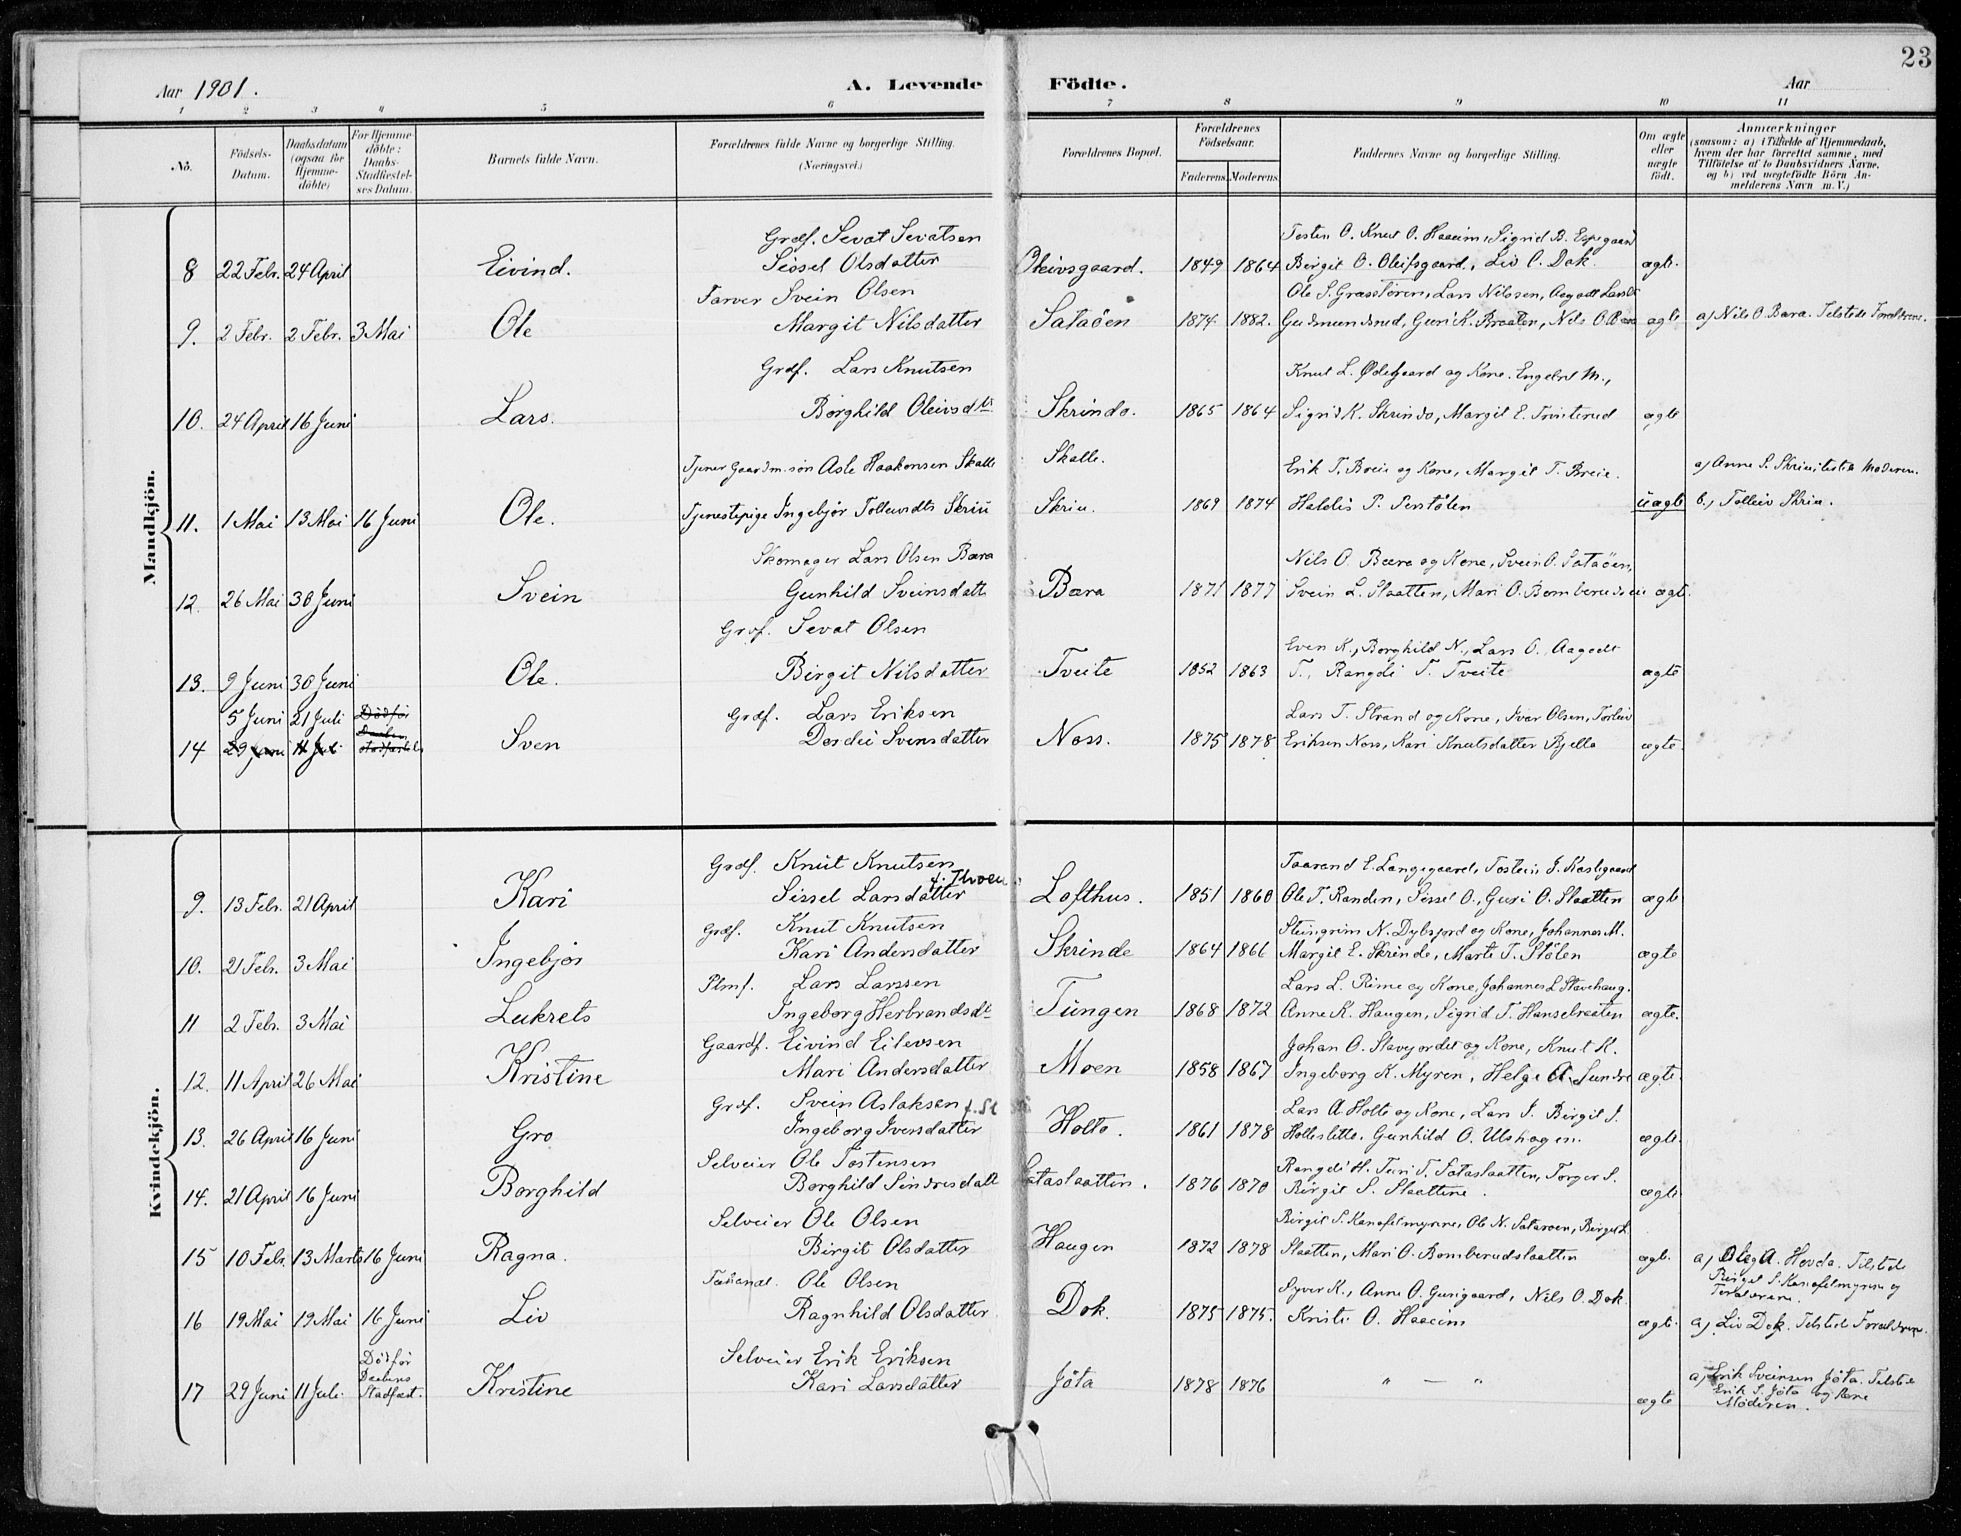 23
Aar 1901. A. Levende Födte. Aar
1 2 3 4 5 6 7 8 9 10 11
No. Födsels-Datum. Daabsdatum (ogsaa for Hjemmedöbte) For Hjemmedöbte: Daabs-Stadfæstelses Datum. Barnets fulde Navn. Forældrenes fulde Navne og borgerlige Stilling. (Næringsvei.) Forældrenes Bopæl. Forældrenes Födselsaar. Faderens Moderens Faddernes Navne og borgerlige Stilling. Om ægte eller uægte födt. Anmærkninger (saasom: a) i Tilfælde af Hjemmedaab, hvem der har forrettet samme, med Tilföielse af to Daabsvidners Navne, og b) ved uægtefödte Börn Anmelderens Navn m. V.)
Mandkjön.
Grdf. Sevat Sevatsen Tosten O. Knut O. Haaeim, Sigrid B. Espegaard
8 22 Febr. 24 April Eivind. Sissel Olsdatter Oleivsgaard. 1849 1864 Birgit O. Oleifsgaard, Liv O. Dok. ægte.
Farver Svein Olsen Ole S. Grasstören, Lars Nilssen, Aagodt Larsdt
9. 2 Febr. 2 Febr. 3 Mai Ole Margit Nilsdatter Sataöen 1874 1882. Gudmundsrud, Guri K. Braaten, Nils O. Bæra ægte a) Nils O. Bæra. Tilstede Forældrene.
Grdf. Lars Knutsen Knut L. Ødegaard og Kone. Engebret M.,
10. 24 April 16 Juni Lars. Borghild Oleivsdtr Skrindo. 1865 1864 Sigrid K. Skrindo, Margit E. Tvisterud ægte
Tjener Gaardm.søn Asle Haakonsen Skalle Skalle. Erik T. Breie og Kone, Margit T. Breie. a) Anne S. Skriu. tilstede Moderen.
11. 1 Mai 13 Mai 16 Juni Ole. Tjenestepige Ingebjør Tolleivsdtr Skriu Skriu. 1869 1874 Haldis P. Perstölen uægte b.) Tolleiv Skriu.
Skomager Lars Olsen Bæra Nils O. Bæra og Kone, Svein O. Sataöen,
12. 26 Mai 30 Juni Svein Gunhild Sveinsdatt Bæra 1871 1877 Svein L. Slaatten, Mari O. Bomberudseie ægte.
Grdf. Sevat Olsen Even K., Borghild N., Lars O. Aagodt
13. 9 Juni 30 Juni Ole. Birgit Nilsdatter Tveite 1852 1863 T., Rangdi T. Tveite ægte
5 Juni 21 Juli Död før Daabens Stadfæstelse Grdf. Lars Eriksen Lars T. Strand og Kone, Ivar Olsen, Torleiv
14 29 Juni 11 Juli Sven Dordei Svensdatter Noss. 1875 1878 Eriksen Noss, Kari Knutsdatter Bjella ægte.
Kvindekjön.
Grdf. Knut Knutsen Taarand E. Langegaard, Tostein J. Kastegaard
9. 13 Febr. 21 April Kari Sissel Larsdatter f. Thoen Lofthus. 1851 1860 Ole T. Randen, Sissel O., Guri O. Slaatten ægte
Grdf. Knut Knutsen Steingrim N. Dybsjord og Kone, Johannes M.
10. 21 Feb. 3 Mai Ingebjør Kari Andersdatter Skrinde 1864 1866 Margit E. Skrinde, Marte T. Stölen ægte
Plmf. Lars Larssen Lars L. Rime og Kone, Johannes L Stavehaug.
11 2 Febr. 3 Mai Lukrets Ingeborg Herbrandsdt Tungen 1868 1872 Anne K. Haugen, Sigrid T. Hansebraaten ægte.
Gaardf. Eivind Eilevsen Johan O. Slavejordet og Kone, Knut K.
12. 11 April 26 Mai Kristine Mari Andersdatter Moen 1858 1867 Ingeborg K. Myren, Helge A. Sundre ægte.
Grdf. Svein Aslaksen Lars A. Holto og Kone, Lars J. Birgit J.
13. 26 April 16 Juni Gro Ingeborg Iversdatter f. Sl Holto. 1861 1878 Holleslette. Gunhild O. Ulshagen. ægte.
Selveier Ole Tostensen Rangdi H. Turi T. Sataslaatten, Torger S.
14. 21 April 16 Juni Borghild Borghild Sindresdatt Sataslaatten. 1876 1870 Birgit S. Slaattene. ægte.
Selveier Ole Olsen Birgit S. Kanafelmyrene, Ole N. Sataroen, Birgit L.
15 10 Febr. 13 Marts 16 Juni Ragna. Birgit Olsdatter Haugen 1872 1878 Slaatten, Mari O. Bomberudslaatten ægte. a) Oleg A. Hovda. Tilstede Birgit S. Kanafelmyrene og Forældrene.
Ole Olsen Syver K., Anne O. Gurigaard, Nils O. Dok.
16 19 Mai 19 Mai 16 Juni Liv Ragnhild Olsdatter Dok. 1875 1875. Kristi O. Haaeim ægte. a) Liv Dok. Tilstede Forældrene.
Selveier Erik Eriksen
17 29 Juni 11 Juli. Död før Daabens Stadfæst. Kristine Kari Larsdatter Jöta 1878 1876 " — " ægte a) Erik Sveinsen Jöta. Tilstede Erik S. Jöta og Kone Moderen.